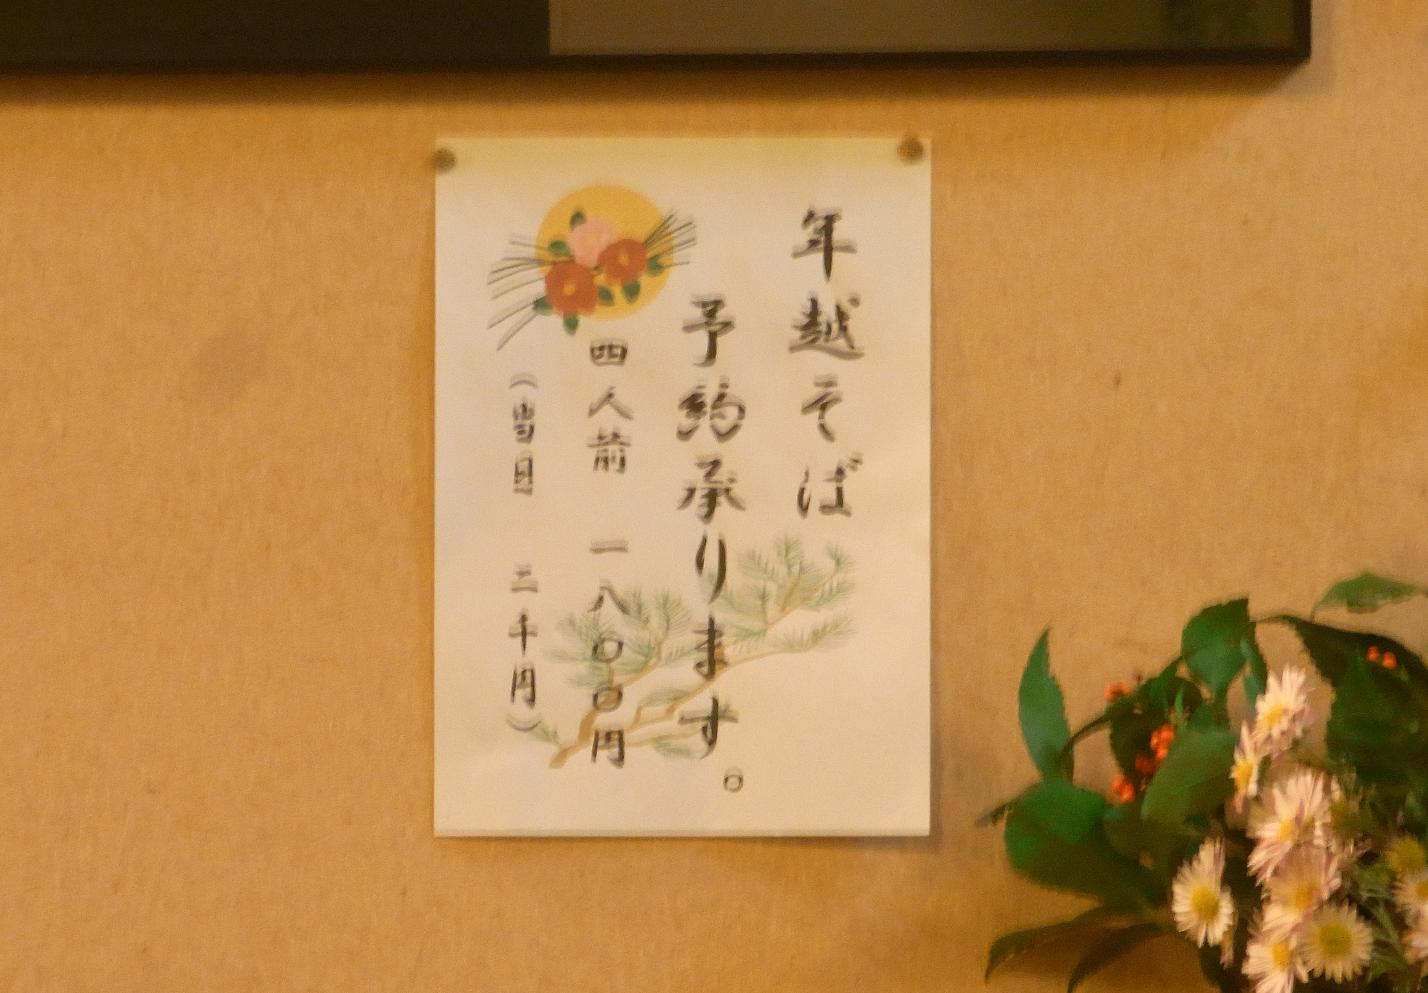 年越そば
予約承ります。
四人前 一八〇〇円
(当日 二千円)